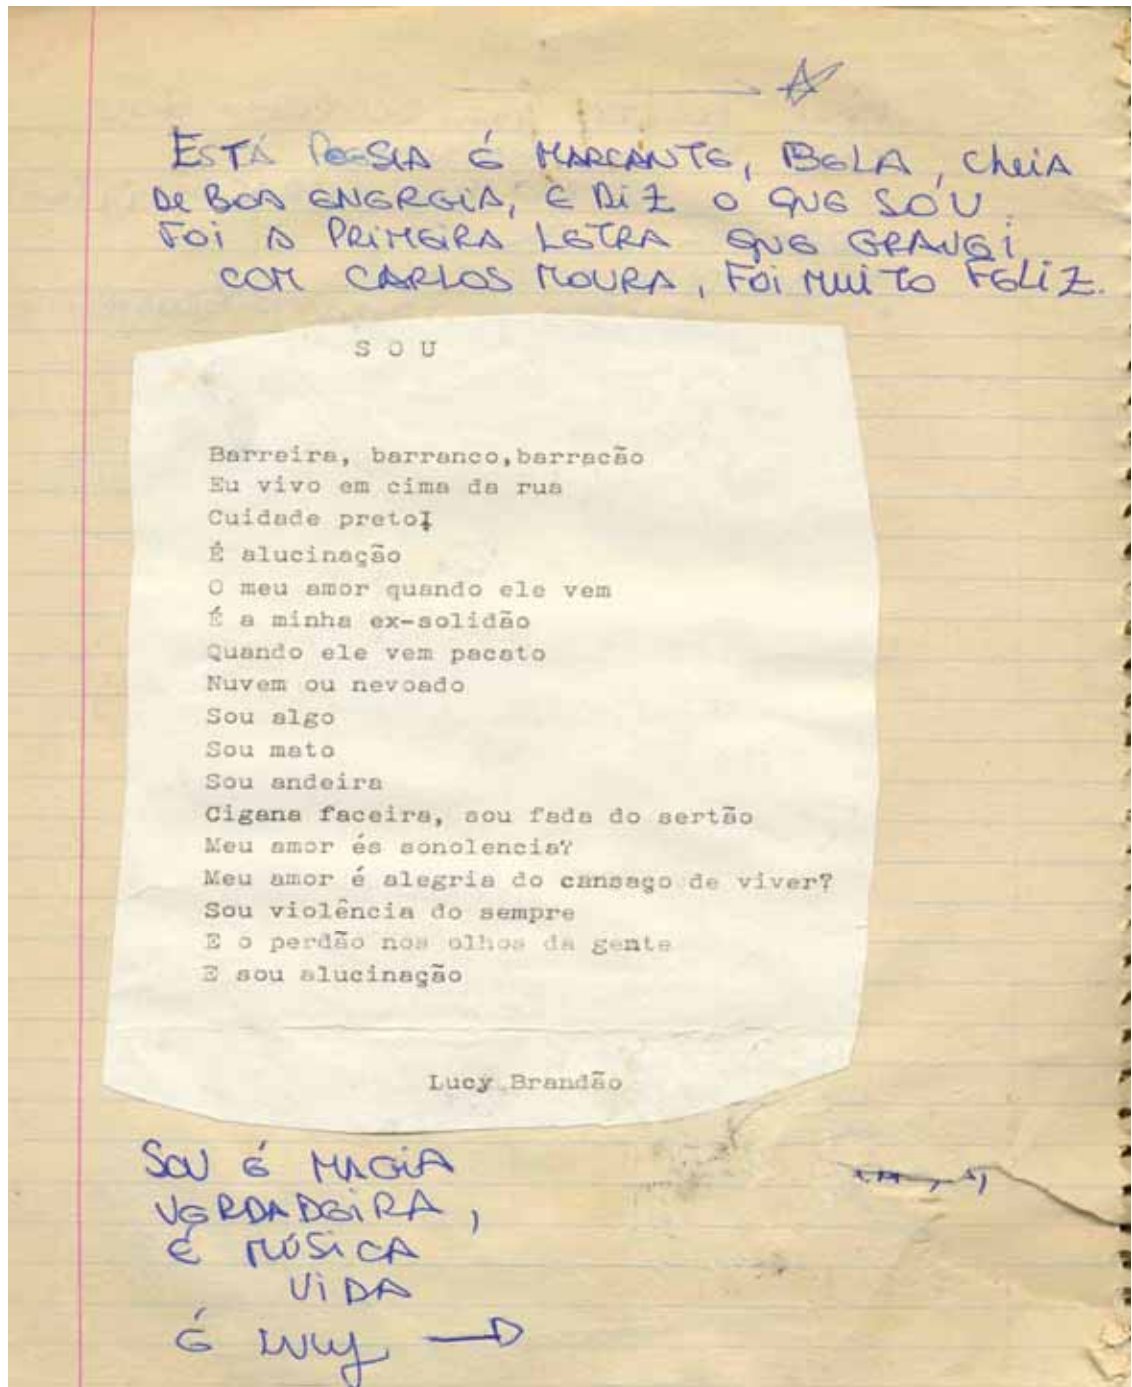 ESTÁ POESIA É MARCANTE, BELA, CheiA
De BOA ENERGIA, E DIZ O QUE SOU.
FOI A PRIMEIRA LETRA QUE GRAVEI
COM CARLOS MOURA, FOI MUITO FELIZ.
S O U
Barreira, barranco,barracão
Eu vivo em cima da rua
Cuidade preto!
É alucinação
O meu amor quando ele vem
É a minha ex-solidão
Quando ele vem pacato
Nuvem ou nevoado
Sou algo
Sou mato
Sou andeira
Cigana faceira, sou fada do sertão
Meu amor és sonolencia?
Meu amor é alegria do cansaço de viver?
Sou violência do sempre
E o perdão nos olhos da gente
E sou alucinação
Lucy Brandão
SOU É MAGIA
VERDADEIRA,
É MÚSICA
VIDA
É Lucy